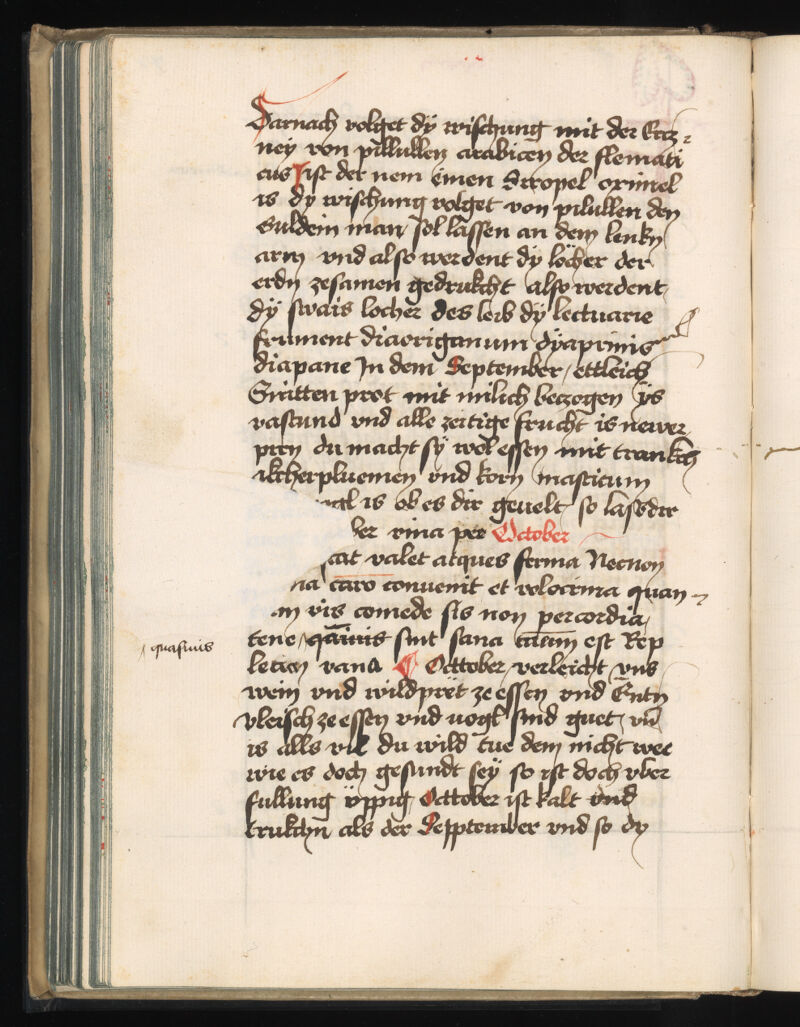 Darnach volget dÿ wischung mit der Ercz⸗
neÿ von pillullen arabicen der flemati
cus ist der nem einen Siropel oximel
is dÿ wischung volget von pilullen den
Guldein man sol lassen an dem lenkn
arm vnd also werdent dÿ löcher der
erdn zesamen gedrukcht also werdent
dÿ swais locher des leib dÿ lectuarie
frument diaoriganum dÿaprimis
diapane In dem September ettleich
Snitten prot mit milich beczogen ÿs
vastund vnd alle zeitige frucht is newer
piren du macht sÿ wol essen mit trankch
akcherpluemen vnd korn masticum
is ob es dir geuelt so lassdir
vina per October
cat valet atques ferina Necnon
na caro convenit et volocrina quan
m vis comede sis non percordia
tene quauis sint sana tamen est Rep
lecio vana October verleicht vns
wein vnd wildprët ze essen vnd Entn
vleisch ze essen vnd uogl sind guet vn̄
is alls vil du wild tue dem nicht wee
wie es doch gesundt seÿ so ist doch vber
fullung üppig October ist kalt vnd
trukchn als der Sepptember vnd so dÿ
quasuis